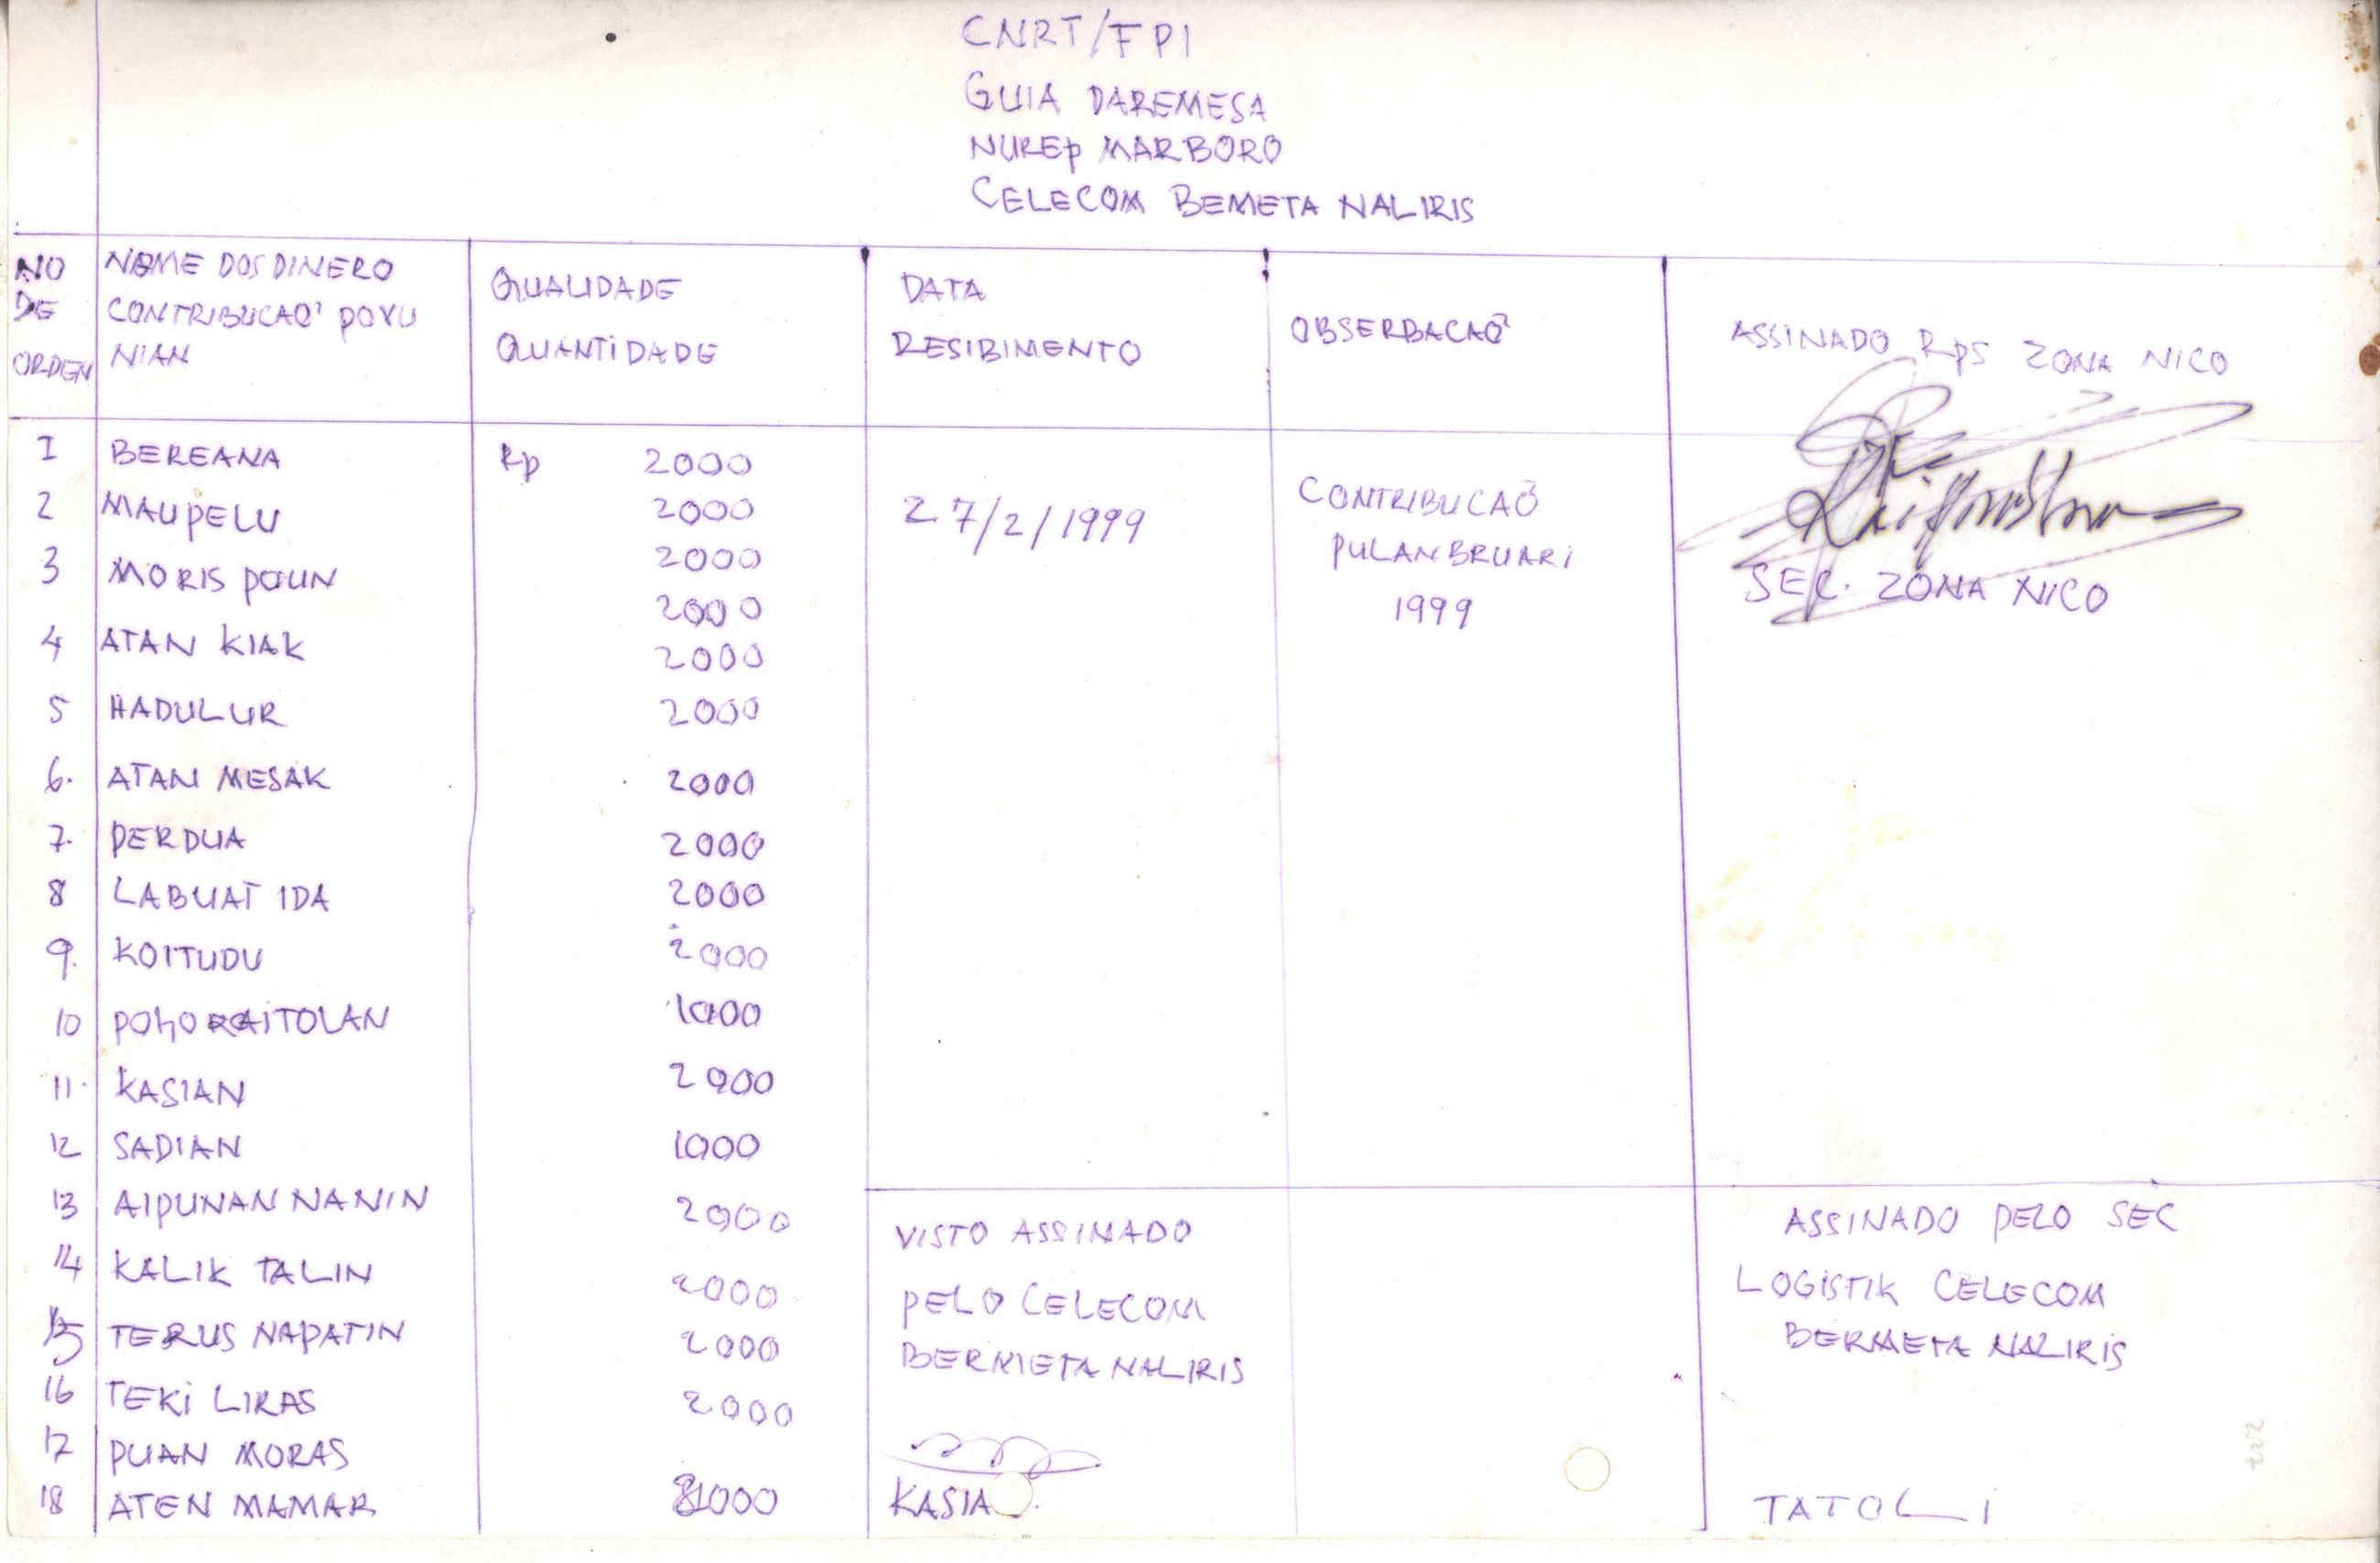 CNRT/FPI
GUIA DAREMESA
NUREP MARBORO
CELECOM BEMETA NALIRIS
NO DE ORDEN
NOME DOS DINERO CONTRIBUCAO' POVU NIAN
QUALIDADE QUANTIDADE
DATA RESIBIMENTO
OBSERBACAÕ
ASSINADO RPS ZONA NICO
1 BEREANA Rp 2000
2 MAUPELU 2000
3 MORIS POUN 2000
2000
4 ATAN KIAK 2000
5 HADULUR 2000
6. ATAN MESAK 2000
7. PERDUA 2000
8 LABUAT IDA 2000
9. KOITUDU 2000
10 POHO RAITOLAN 1000
11. KASIAN 2000
12 SADIAN 1000
13 AIPUNAN NANIN 2000
14 KALIK TALIN 2000
15 TERUS NAPATIN 2000
16 TEKI LIRAS 2000
17 PUAN MORAS
18 ATEN MAMAR 1000
27/2/1999
CONTRIBUCAÕ
PULANBRUARI
1999
SEC. ZONA NICO
VISTO ASSINADO
PELO CELECOM
BERMETA NALIRIS
KASIA
ASSINADO PELO SEC
LOGISTIK CELECOM
BERMETA NALIRIS
TATOLI